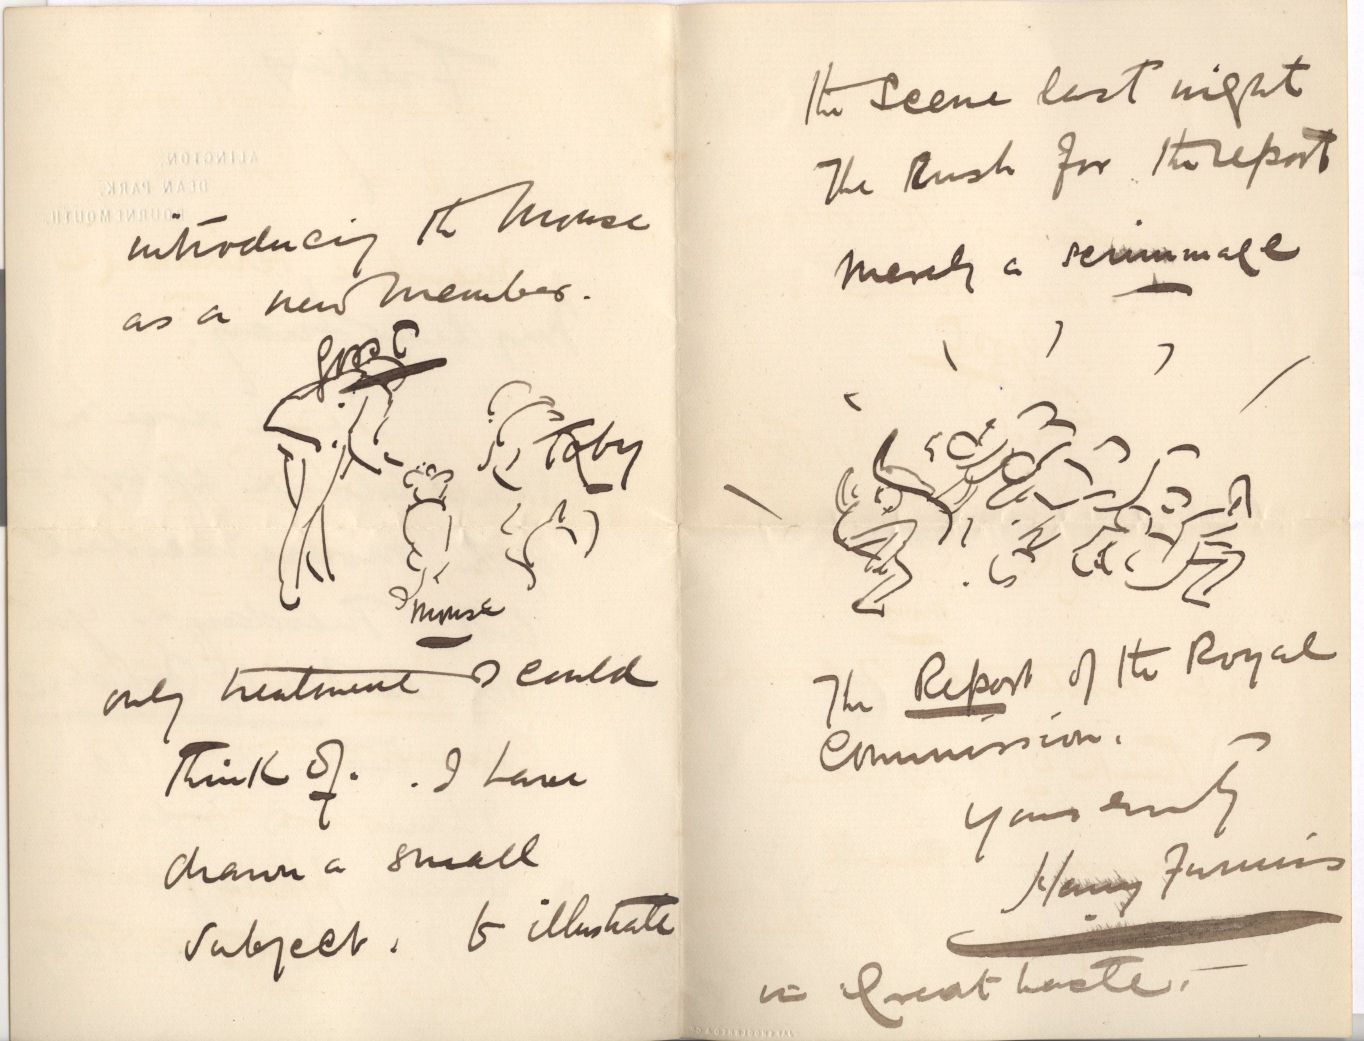 ALINGTON,
DEAN PARK,
BOURNEMOUTH.
introducing the Mouse
as a new Member.
Toby
Mouse
only treatment I could
think of. . I have
drawn a small
subject. to illustrate
the Scene last night
The Rush for the report
Merely a scrimmage
The Report of the Royal
Commission.
Yours
Harry Furniss
in Great haste.